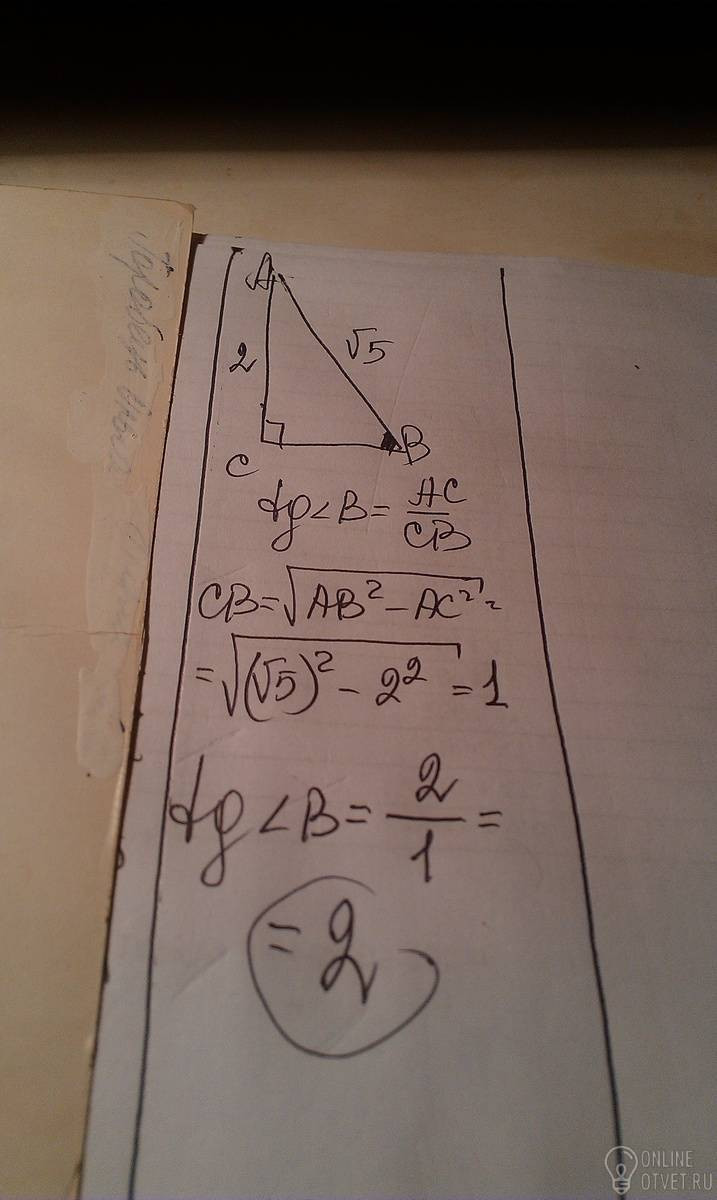 A
2
√5
C
B
tg∠B = AC/CB
CB = √(AB² − AC²) =
= √((√5)² − 2²) = 1
tg∠B = 2/1 =
= 2
ONLINE
OTVET.RU